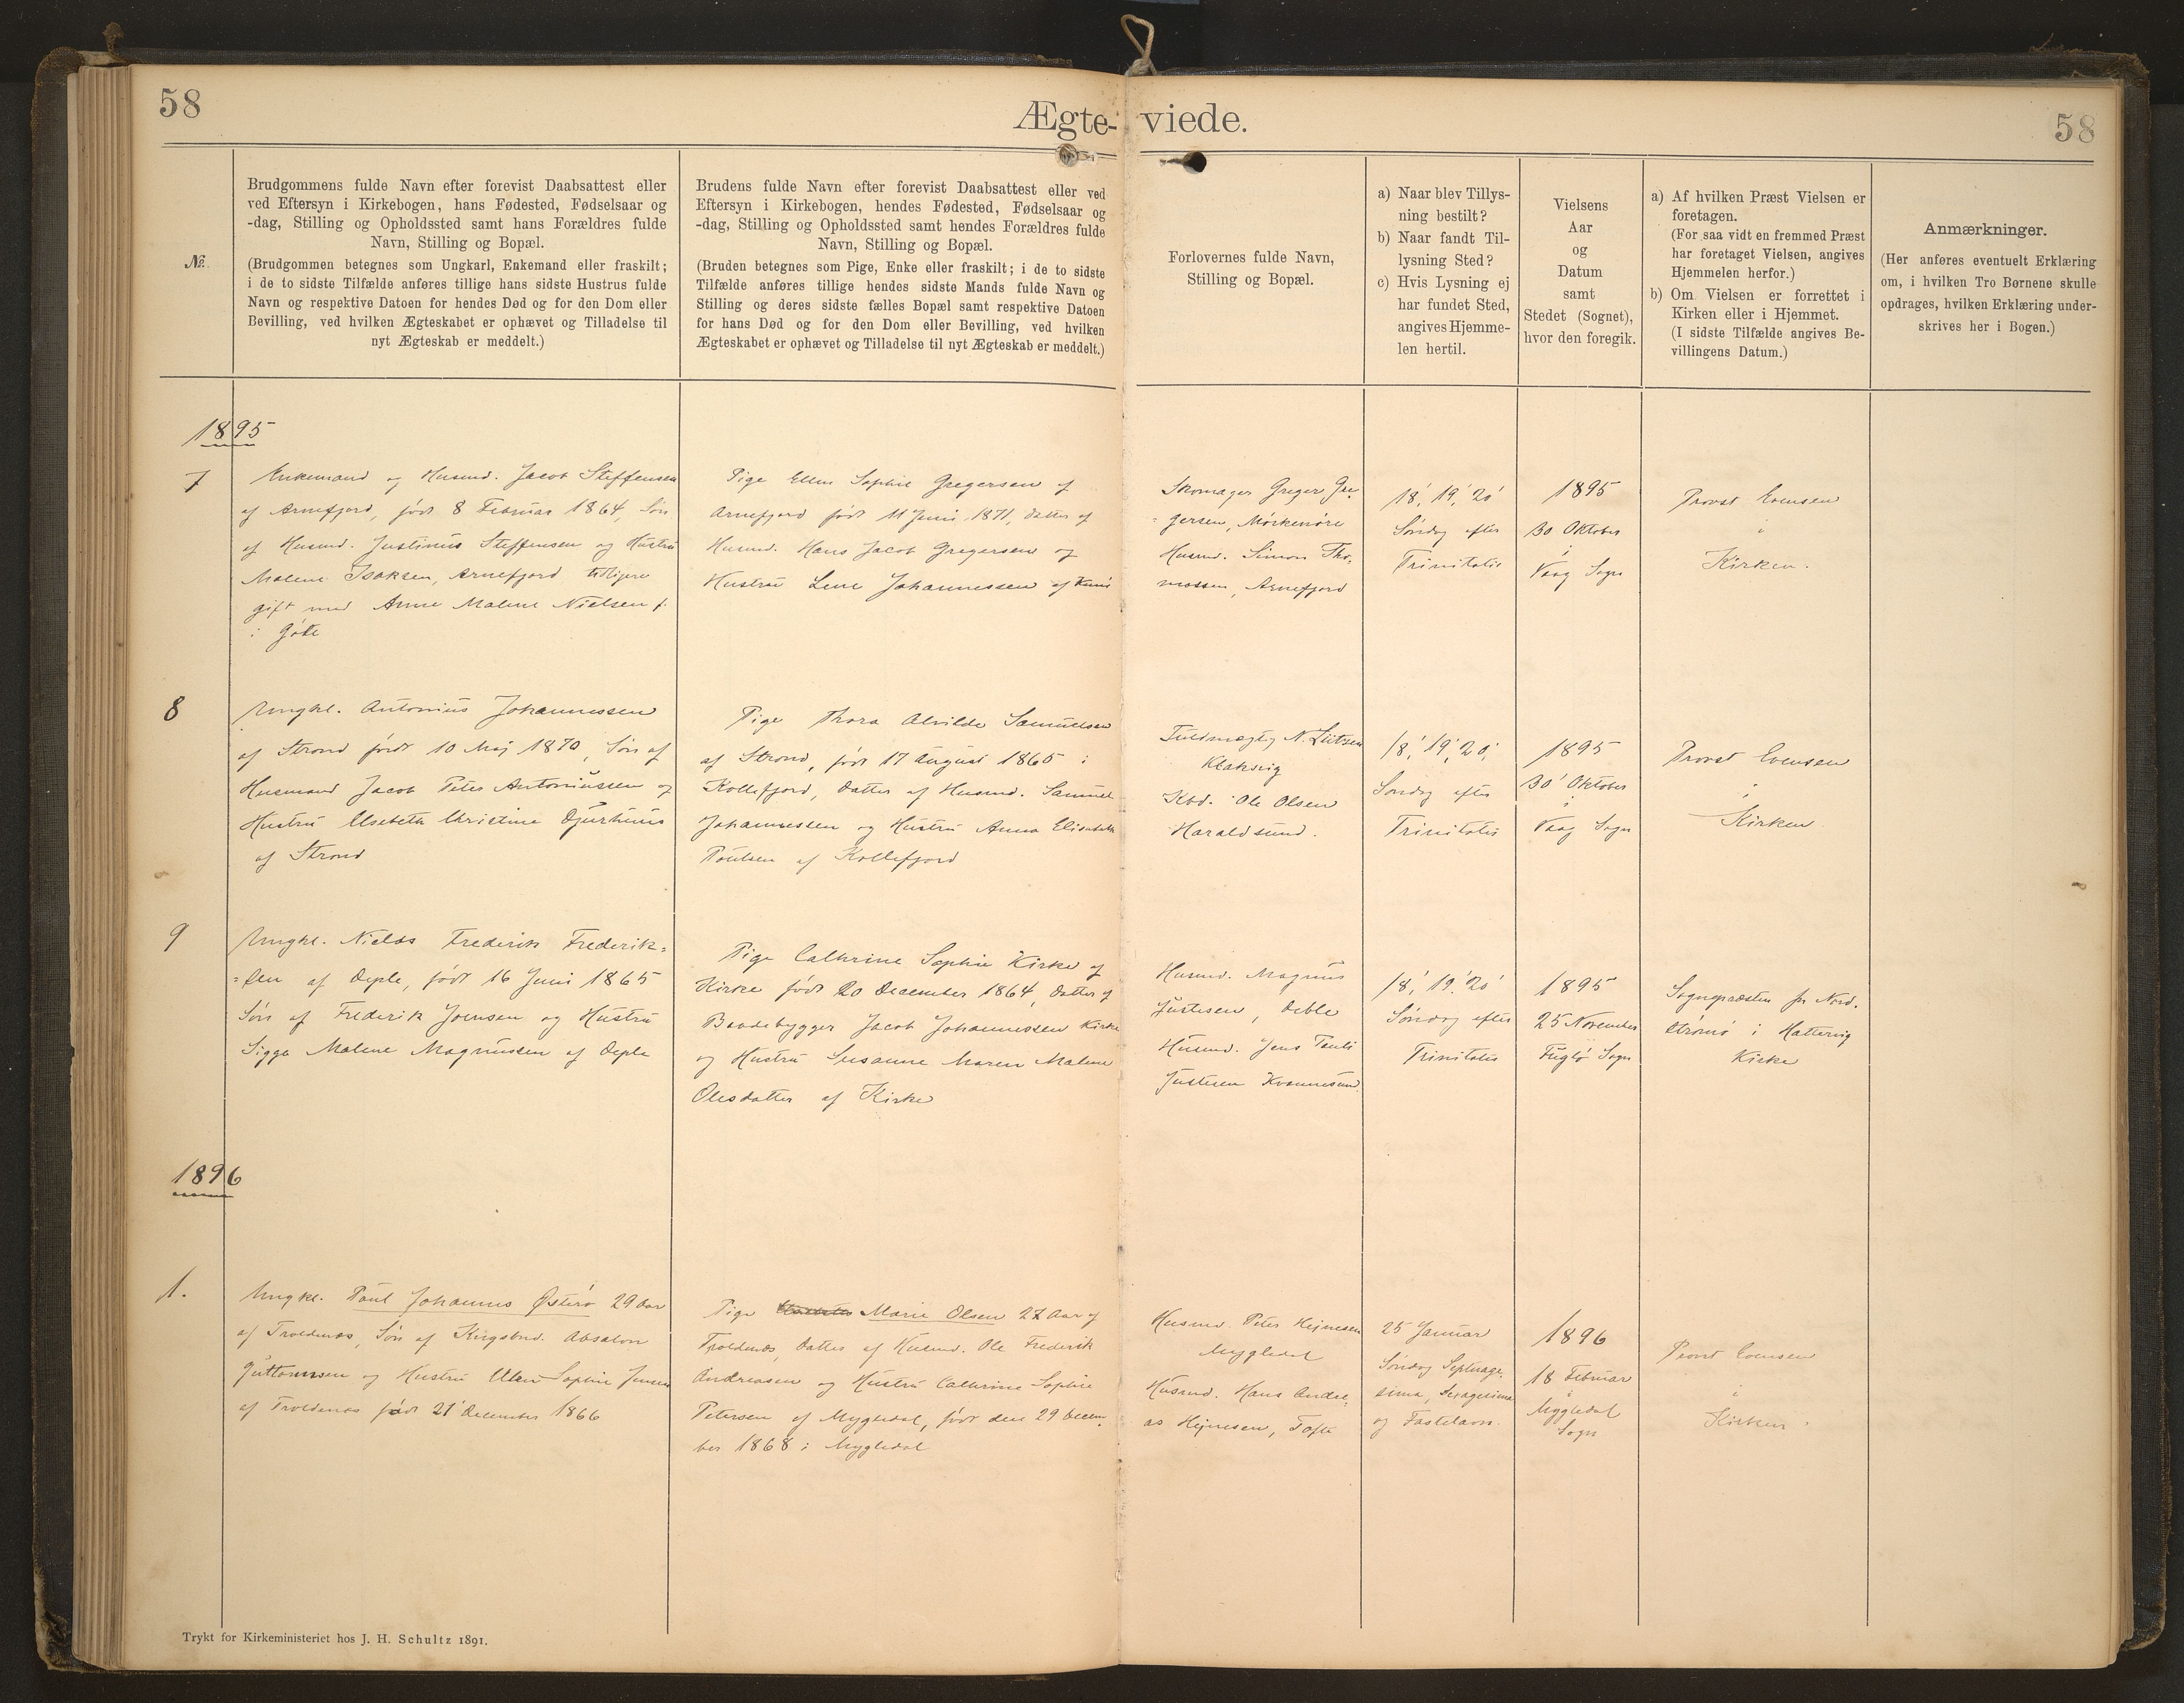 58
Ægte-
viede.
58
№.
Brudgommens fulde Navn efter forevist Daabsattest eller
ved Eftersyn i Kirkebogen, hans Fødested, Fødselsaar og
-dag, Stilling og Opholdssted samt hans Forældres fulde
Navn, Stilling og Bopæl.
(Brudgommen betegnes som Ungkarl, Enkemand eller fraskilt;
i de to sidste Tilfælde anføres tillige hans sidste Hustrus fulde
Navn og respektive Datoen for hendes Død og for den Dom eller
Bevilling, ved hvilken Ægteskabet er ophævet og Tilladelse til
nyt Ægteskab er meddelt.)
Brudens fulde Navn efter forevist Daabsattest eller ved
Eftersyn i Kirkebogen, hendes Fødested, Fødselsaar og
-dag, Stilling og Opholdssted samt hendes Forældres fulde
Navn, Stilling og Bopæl.
(Bruden betegnes som Pige, Enke eller fraskilt; i de to sidste
Tilfælde anføres tillige hendes sidste Mands fulde Navn og
Stilling og deres sidste fælles Bopæl samt respektive Datoen
for hans Død og for den Dom eller Bevilling, ved hvilken
Ægteskabet er ophævet og Tilladelse til nyt Ægteskab er meddelt.)
Forlovernes fulde Navn,
Stilling og Bopæl.
a) Naar blev Tillys-
ning bestilt?
b) Naar fandt Til-
lysning Sted?
c) Hvis Lysning ej
har fundet Sted,
angives Hjemme-
len hertil.
Vielsens
Aar
og
Datum
samt
Stedet (Sognet),
hvor den foregik.
a) Af hvilken Præst Vielsen er
foretagen.
(For saa vidt en fremmed Præst
har foretaget Vielsen, angives
Hjemmelen herfor.)
b) Om Vielsen er forrettet i
Kirken eller i Hjemmet.
(I sidste Tilfælde angives Be-
villingens Datum.)
Anmærkninger.
(Her anføres eventuelt Erklæring
om, i hvilken Tro Børnene skulle
opdrages, hvilken Erklæring under-
skrives her i Bogen.)
1895
7
Enkemand og Husmd. Jacob Steffensen
af Arnefjord, født 8 Februar 1864, Søn
af Husmd. Justinus Steffensen og Hustru
Malene Isaksen, Arnefjord tidligere
gift med Anne Malene Nielsen f.
i Gøte
Pige Ellen Sophie Gregersen af
Arnefjord født 11 Juni 1871, datter af
Husmd. Hans Jacob Gregersen og
Hustru Lene Johannessen af
Skomager Greger Gre-
gersen, Mørkenøre
Husmd. Simon Tho-
massen, Arnefjord
18', 19', 20'
Søndag efter
Trinitatis
1895
30 Oktober
i
Vaag Sogn
Provst Evensen
i
Kirken.
8
Ungkl. Antonius Johannessen
af Strond født 10 Maj 1870, Søn af
Husmand Jacob Peter Antoniussen og
Hustru Elsebeth Christine Djurhuus
af Strond
Pige Thora Alvilde Samuelsen
af Strond, født 17 August 1865 i
Kollefjord, Datter af Husmd. Samuel
Johannessen og Hustru Anna Elisabeth
Poulsen af Kollefjord
Fuldmægtig N.
Klaksvig
Kbd. Ole Olsen
Haraldsund.
18', 19', 20'
Søndag efter
Trinitatis
1895
30' Oktober
i
Vaag Sogn
Provst Evensen
i
Kirken
9
Ungkl. Niels Frederik Frederik=
=sen af Deple, født 16 Juni 1865
Søn af Frederik Joensen og Hustru
Sigga Malene Magnussen af Deple
Pige Cathrine Sophie Kirke af
Kirke født 20 December 1864, Datter af
Baadebygger Jacob Johannessen Kirke
og Hustru Susanne Maren Malene
Olesdatter af Kirke
Husmd. Magnus
Justesen, Deble
Husmd. Jens Pauli
Justesen Kvannesund
18', 19', 20'
Søndag efter
Trinitatis
1895
25 November
Fuglø Sogn
Sognepræsten for Nord.
strømø i Hattervig
Kirke
1896
1.
Ungkl. Poul Johannes Østerø 29 Aar
af Troldenæs, Søn af Kingsbnd. Absalon
Guttormsen og Hustru Ellen Sophie Jensen
af Troldenæs født 21' December 1866
Pige Marie Olsen 27 Aar af
Troldenæs, Datter af Husmd. Ole Frederik
Andreasen og Hustru Cathrine Sophie
Petersen af Mygledal, født den 29 Decem-
ber 1868 i Mygledal
Husmd. Peter Hejnesen
Mygledal
Husmd. Hans Andre-
as Hejnesen, Tofte
25 Januar
Søndag Septuage-
sima, Sexagesima
og Fastelavn.
1896
18 Februar
i
Mygledal
Sogn
Provst Evensen
i
Kirken.
Trykt for Kirkeministeriet hos J. H. Schultz 1891.